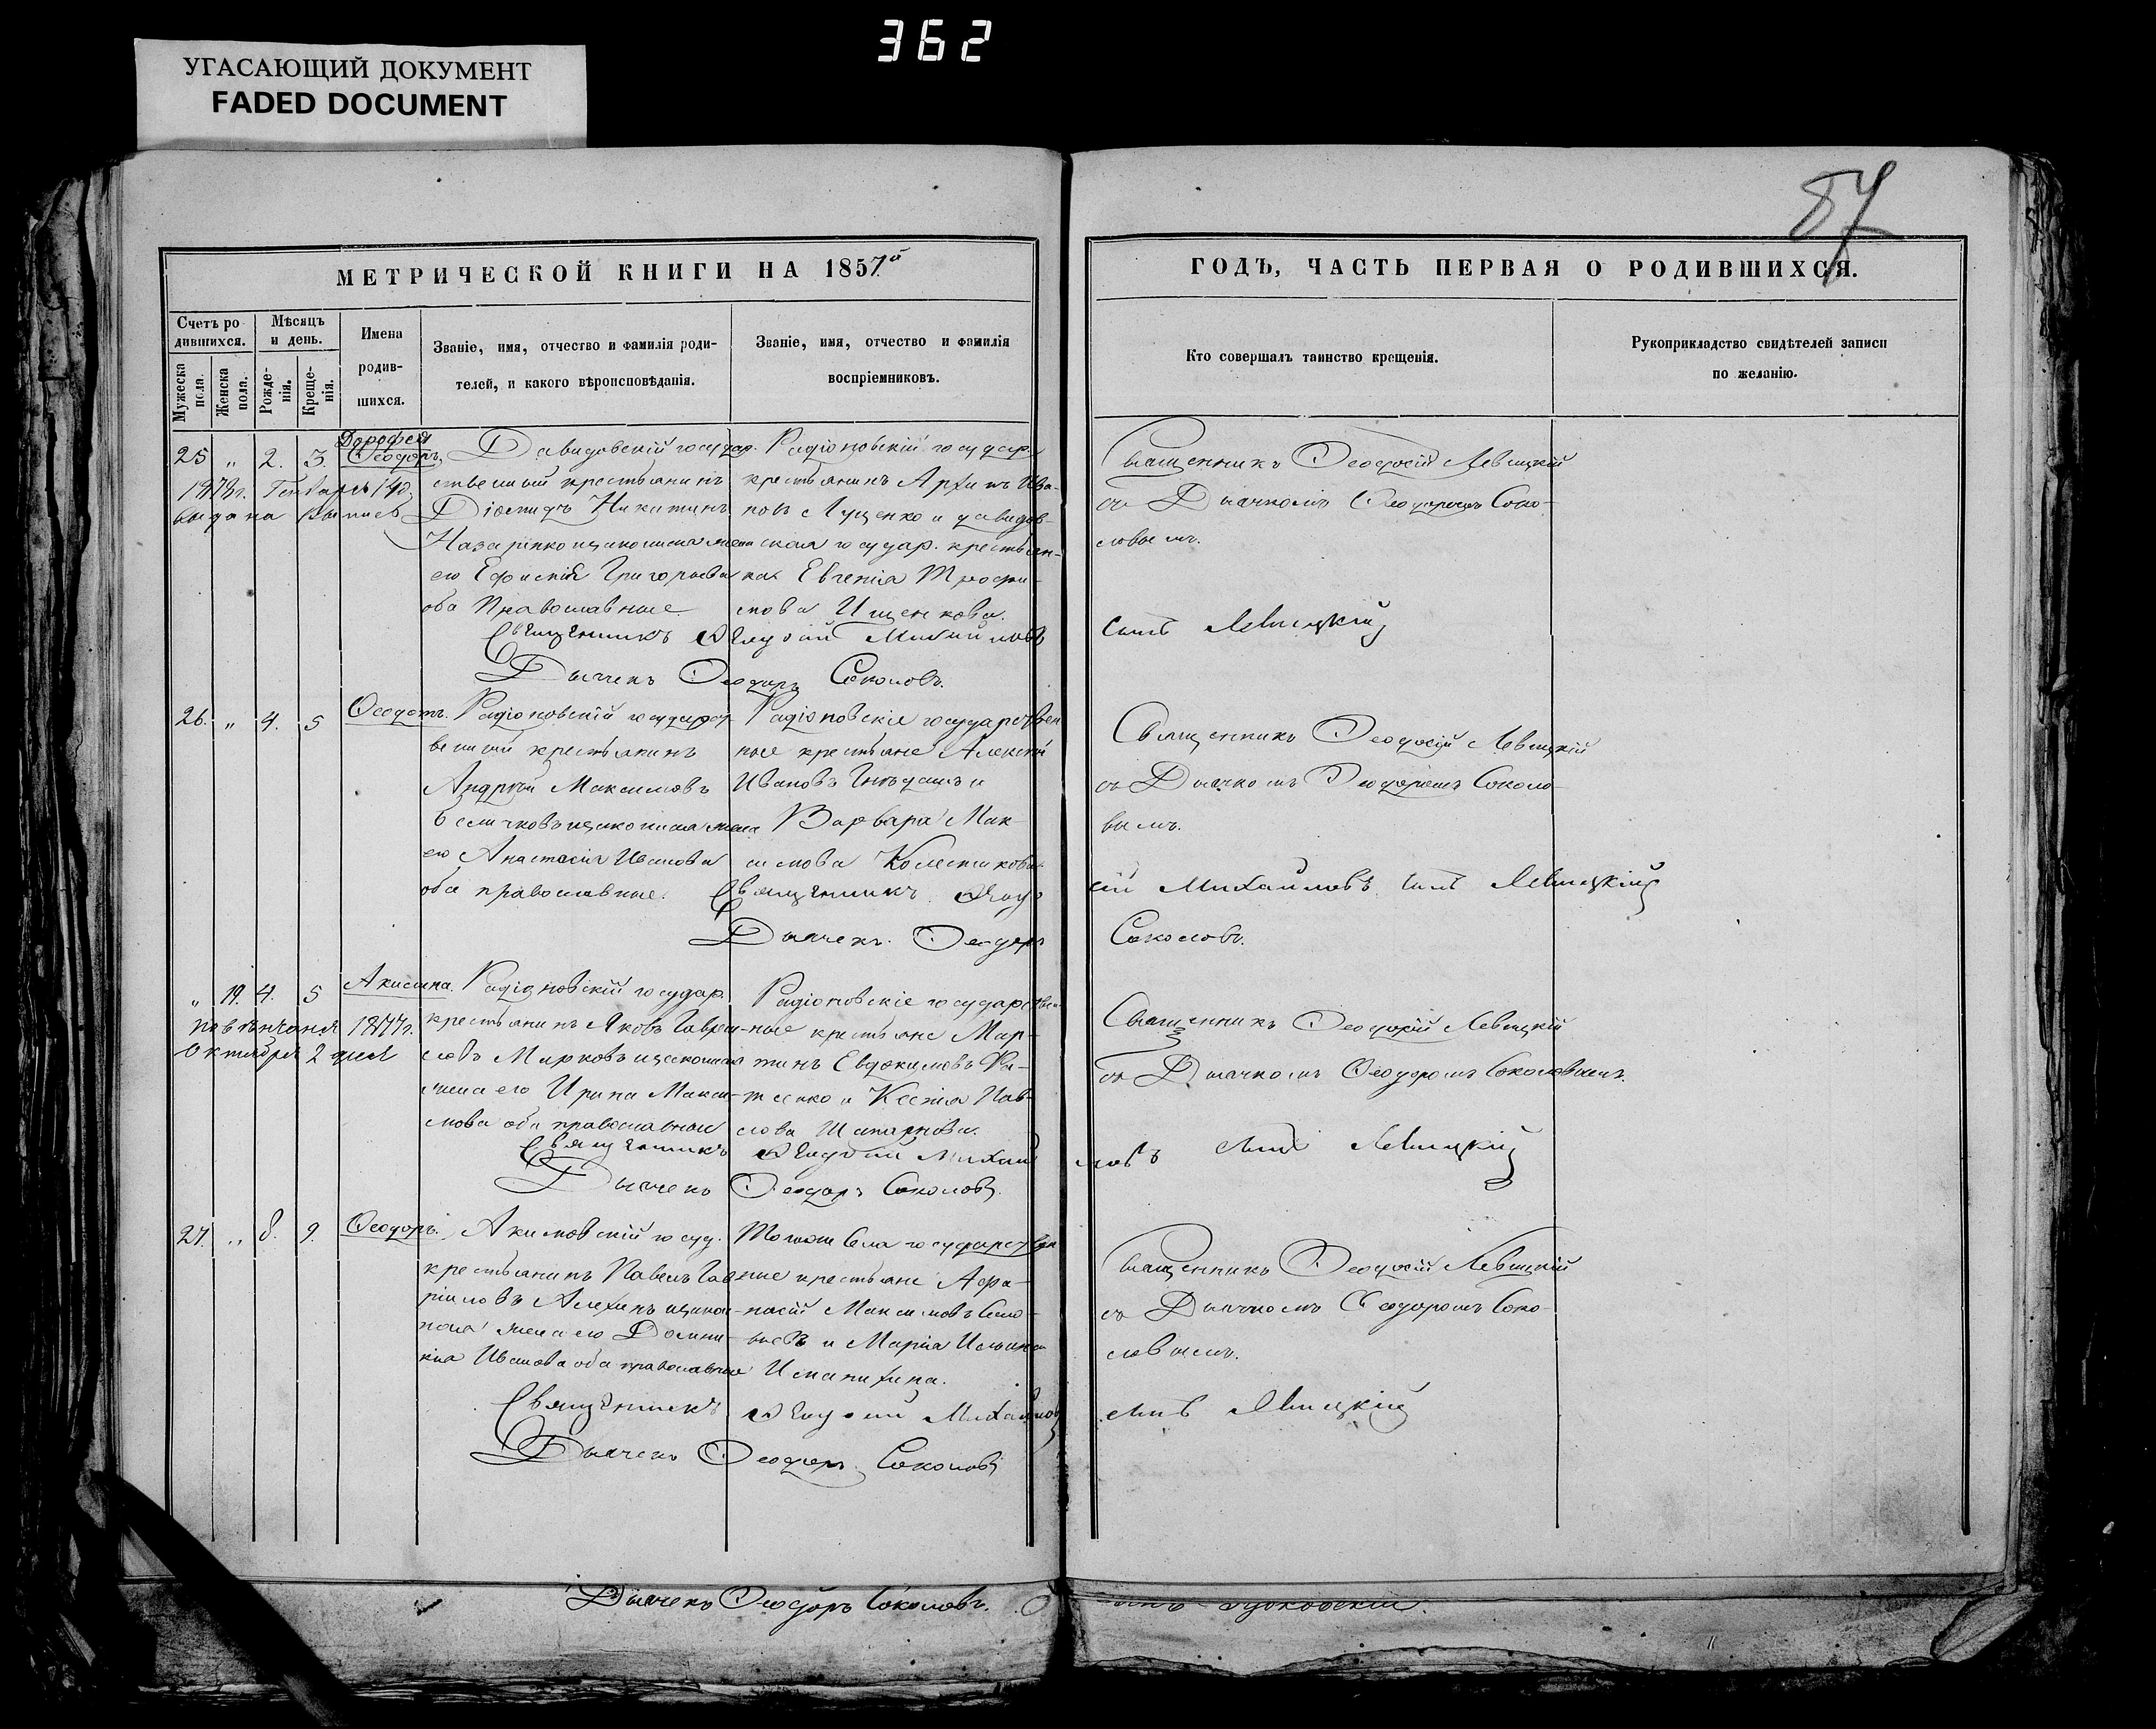 362
УГАСАЮЩИЙ ДОКУМЕНТ
FADED DOCUMENT
87
МЕТРИЧЕСКОЙ КНИГИ НА 1857й
ГОДЪ, ЧАСТЬ ПЕРВАЯ О РОДИВШИХСЯ.
Счетъ ро
дившихся.
Мужеска пола.
Женска пола.
Мѣсяцъ
и день.
Рожде-
нія.
Креще-
нія.
Имена
родив-
шихся.
Званіе, имя, отчество и фамилія роди-
телей, и какого вѣроисповѣданія.
Званіе, имя, отчество и фамилія
воспріемниковъ.
Кто совершалъ таинство крещенія.
Рукоприкладство свидѣтелей записи
по желанію.
25 " 2. 3.
Дорофей
Ѳеодоръ.
выдана выпись
Давидовскій государ-
ственный крестьянинъ
Никитинъ
Назаренко и законная жена
его Григорьева
оба Православные
Радіоновскій государ.
крестьянинъ Архипъ Ива-
новъ Луценко и давидов-
ская государ. крестьян-
ка Евгенія Трофи-
мова Ищенкова.
Священникъ Ѳеодосій Левицкій
съ Дьячкомъ Ѳеодоромъ Соко-
ловымъ.
Священникъ Ѳеодосій Михайловъ
сынъ Левицкій
Дьячекъ Ѳеодоръ Соколовъ.
26. " 4. 5
Ѳеодотъ.
Радіоновскій государст-
венный крестьянинъ
Андрей Максимовъ
и законная жена
его Анастасія Иванова
оба православные.
Радіоновскіе государствен
ные крестьяне Алексѣй
Ивановъ и
Варвара Мак-
симова Колесникова.
Священникъ Ѳеодосій Левицкій
съ Дьячкомъ Ѳеодоромъ Соколо-
вымъ.
Священникъ Ѳеодо
сій Михайловъ сынъ Левицкій
Дьячекъ Ѳеодоръ
Соколовъ.
" 19. 4. 5
Акилина.
повѣнчана 1877г.
Октября 2 дня
Радіоновскій государ.
крестьянинъ Яковъ Гаври-
ловъ Марковъ и законная
жена его Ирина Макси-
мова оба православные
Радіоновскіе государствен
ные крестьяне Мар-
тинъ Евдокимовъ
и Ксенія Пав-
лова
Священникъ Ѳеодосій Левицкій
съ Дьячкомъ Ѳеодоромъ Соколовымъ.
Священникъ Ѳеодосій Михай
ловъ сынъ Левицкій
Дьячекъ Ѳеодоръ Соколовъ.
27. " 8. 9.
Ѳеодоръ.
Акимовскій госуд.
крестьянинъ Павелъ Гав-
риловъ Алехинъ и закон-
ная жена его Домни-
кия Иванова оба православные
Тогоже Села государствен
ные крестьяне Афа-
насій Максимовъ
и Марія Ильина
Священникъ Ѳеодосій Левицкій
съ Дьячкомъ Ѳеодоромъ Соко-
ловымъ.
Священникъ Ѳеодосій Михайловъ
сынъ Левицкій
Дьячекъ Ѳеодоръ Соколовъ
Дьячекъ Ѳеодоръ Соколовъ.